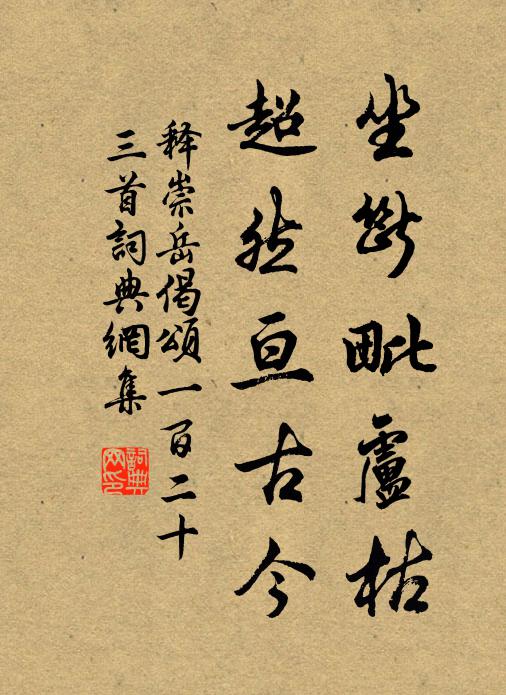 坐斷毗盧枯
超然亘古今
释崇岳偈頌一百二十
三首詞典網集
詞典
网印